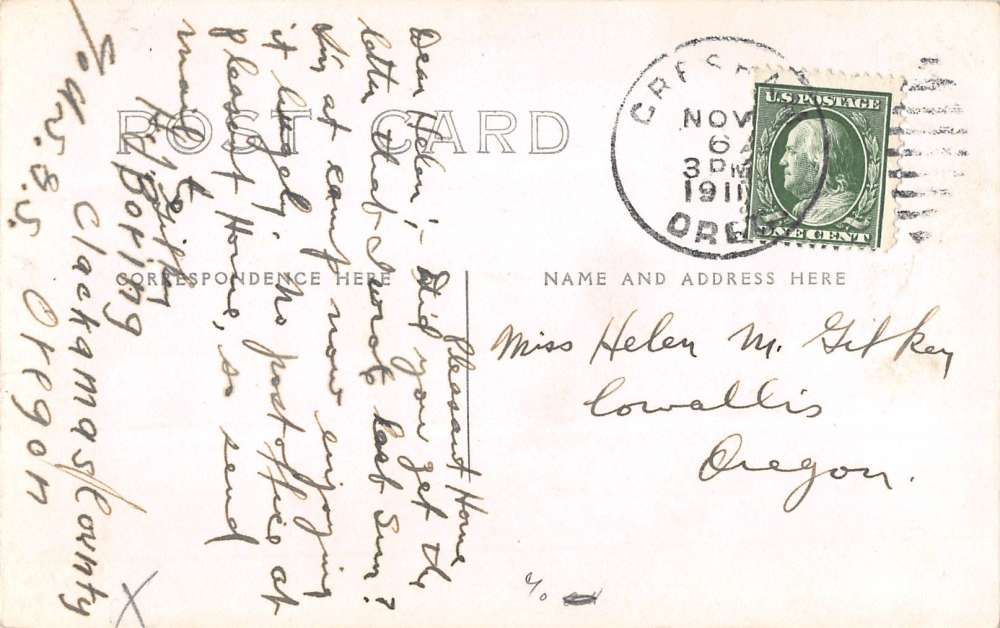 POST CARD
CORRESPONDENCE HERE
NAME AND ADDRESS HERE
GRESHAM
NOV
6
3 PM
1911
OREG.
U.S. POSTAGE
ONE CENT
Miss Helen M. Gilkey
Corvallis
Oregon.
Pleasant Home
Dear Helen:- Did you get the
letter that I wrote last Sun?
at camp now enjoying
it hugely. No post office at
Pleasant Home, so send
mail to
Boring
Clackamas County
Oregon